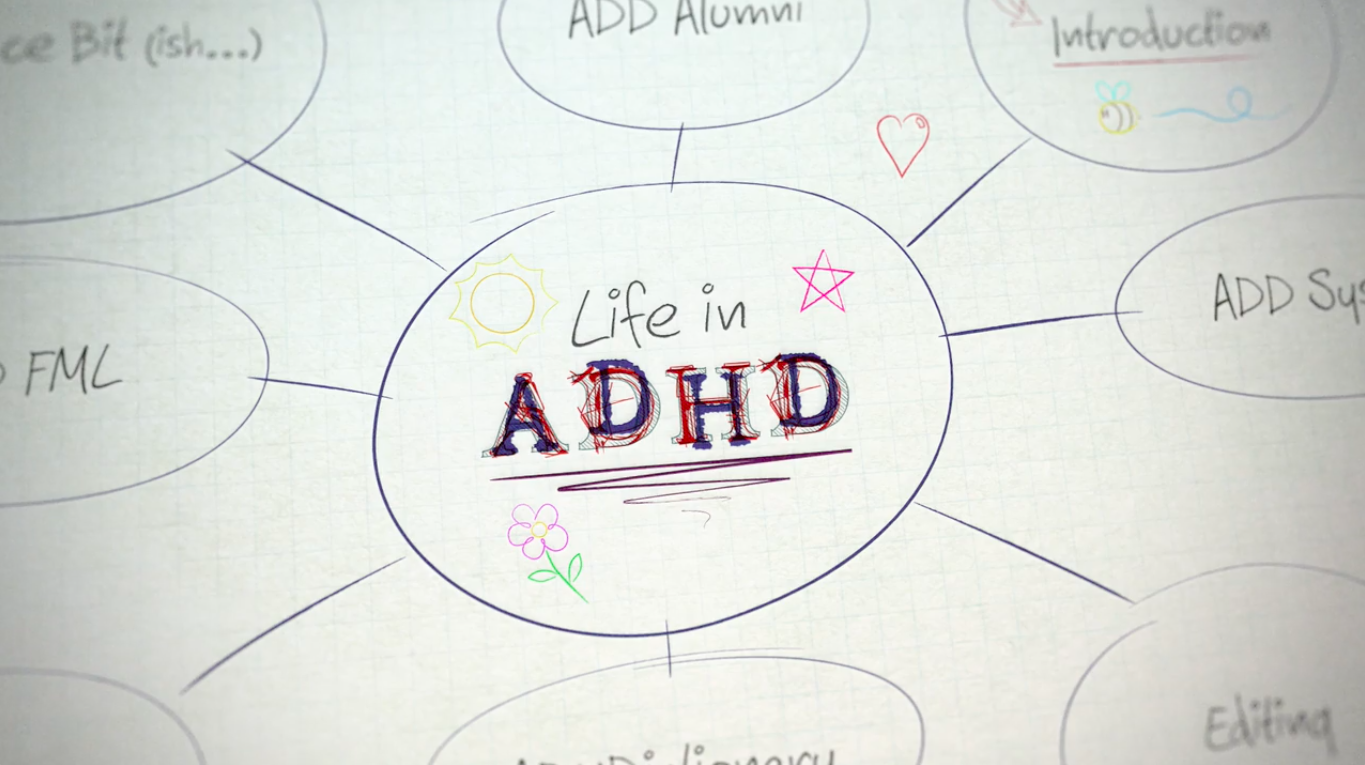 ce Bit (ish...)
ADD Alumni
Introduction
FML
Life in
ADHD
ADD Sys
Editing